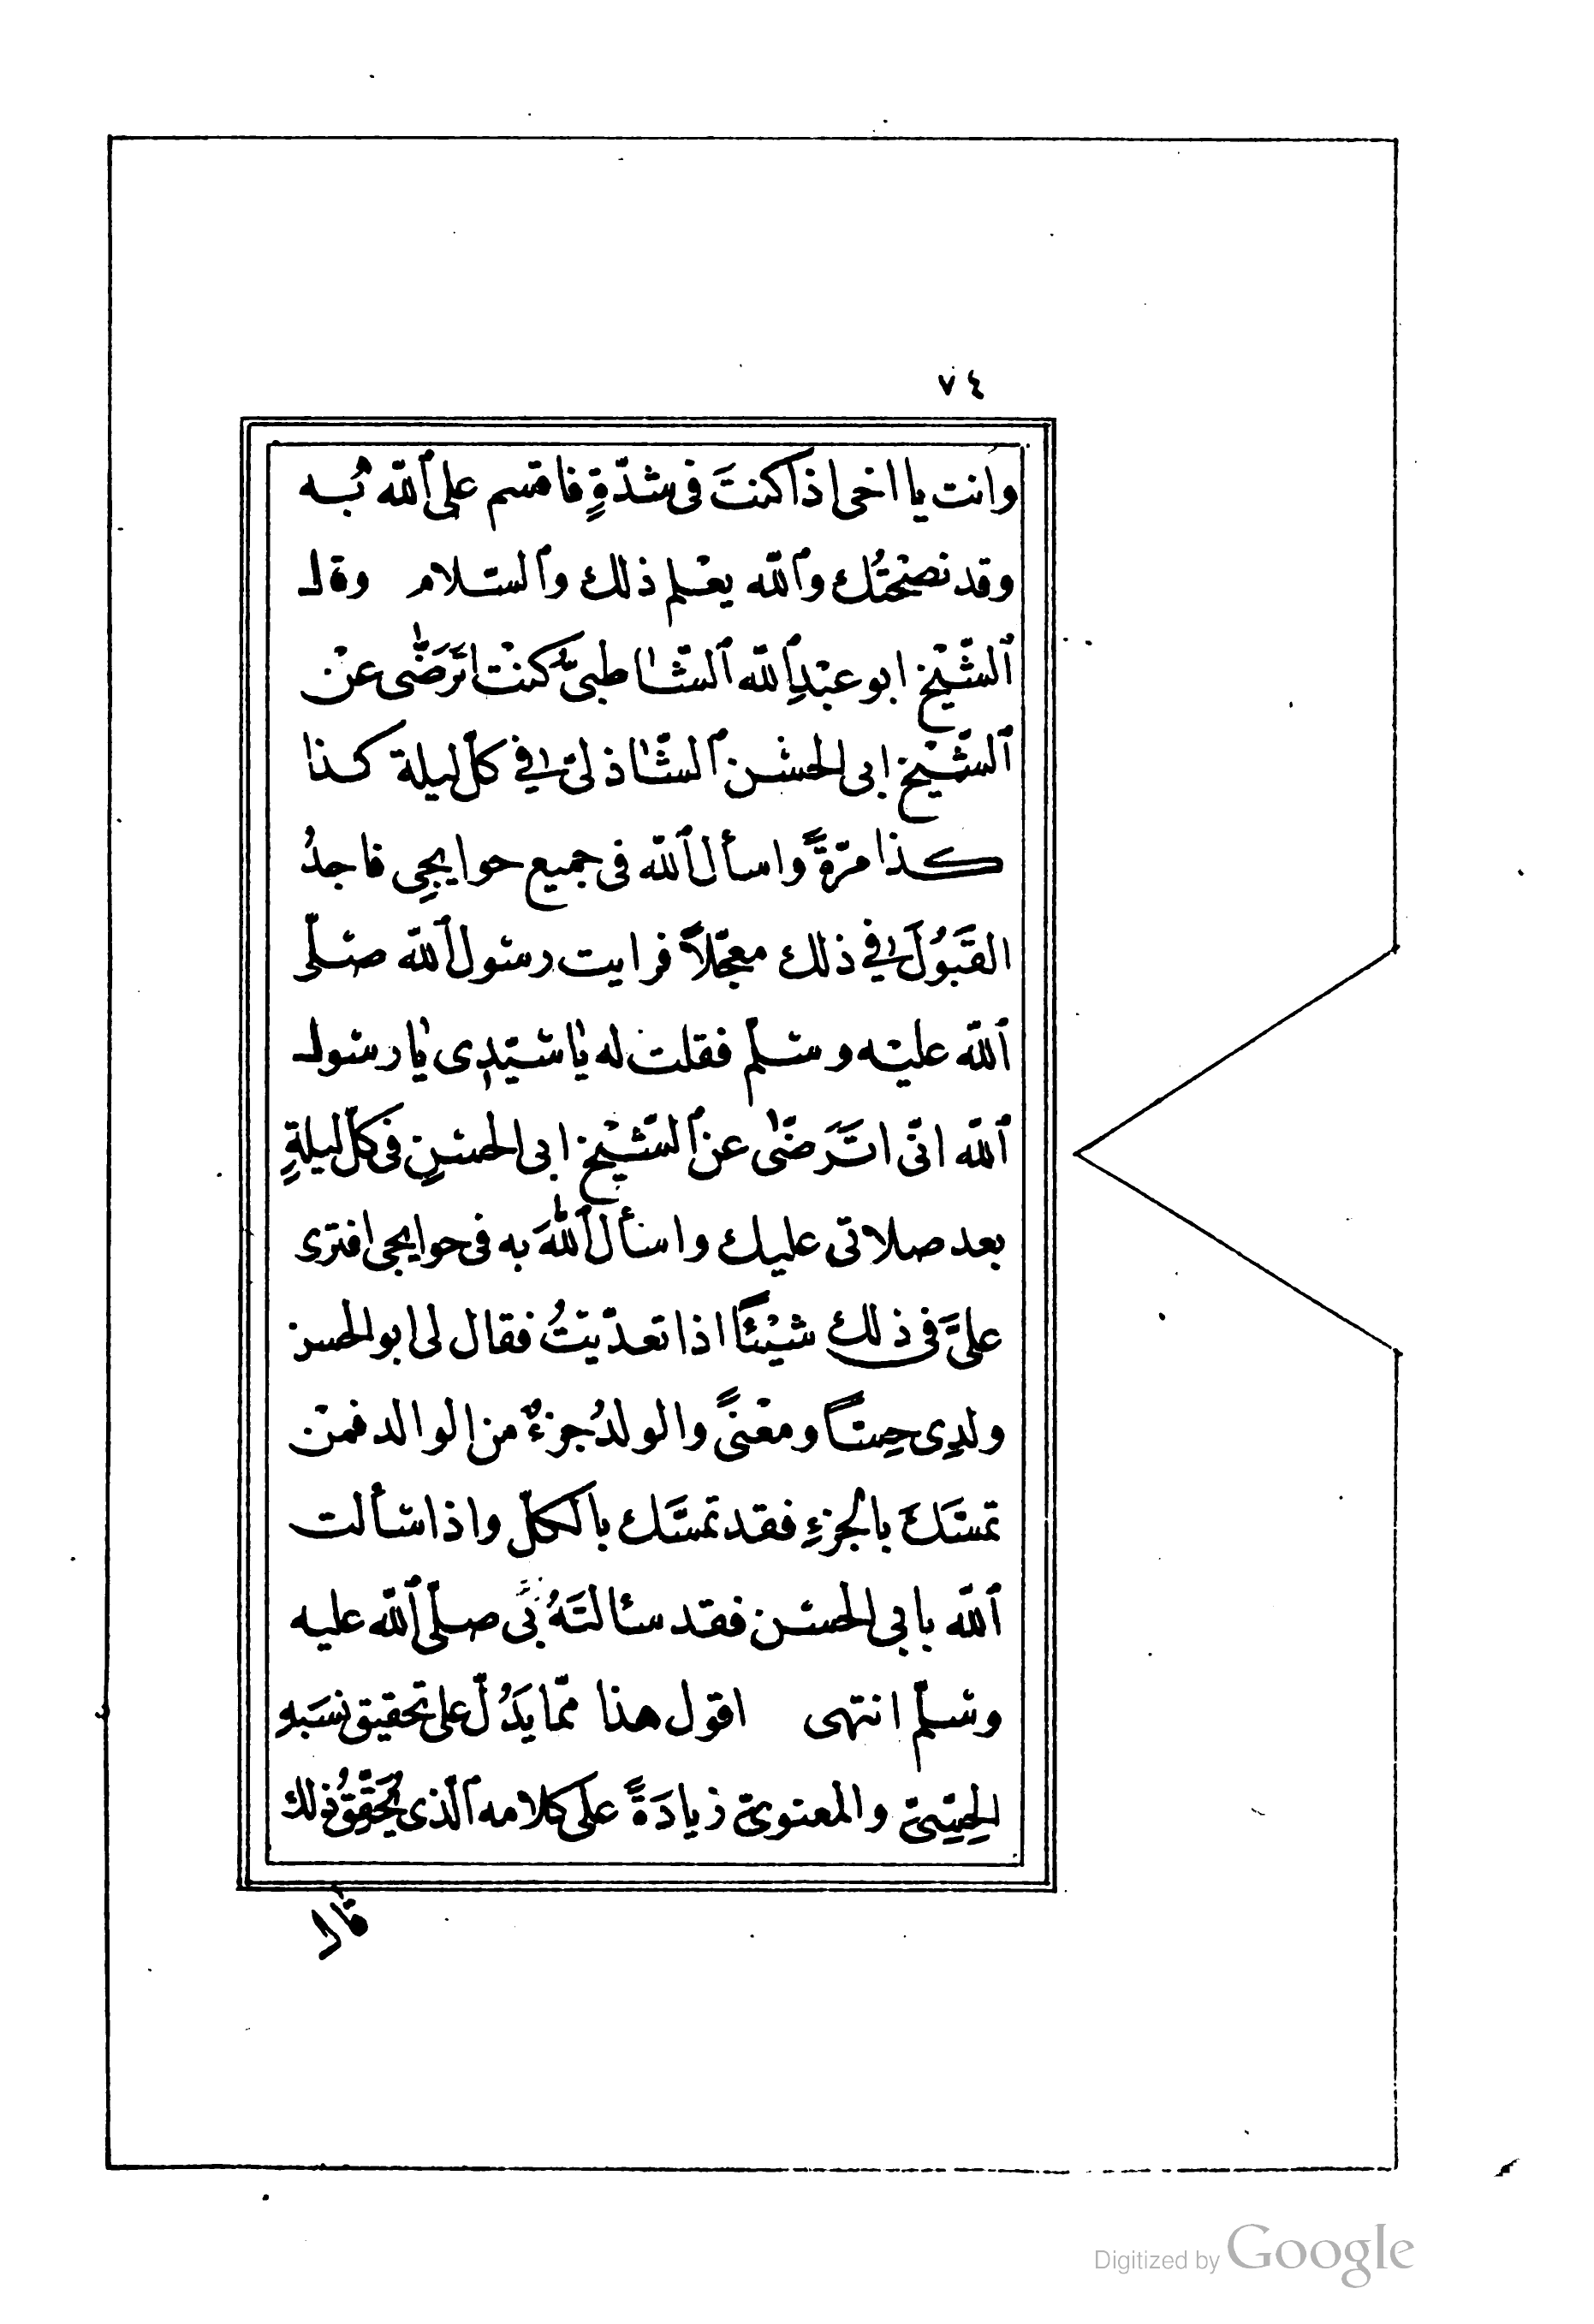 ٧٤
وانت يا اخى اذا كنتَ فى شدّةٍ فاقسم على ٱللّه بُه
وقد نصَحْتُك وٱللّه يعْلم ذلك وٱلسّلام وقال
ٱلشّيْخ ابو عبْدِٱللّه ٱلشّاطبىّ كنْت اتَرَضّٰى عنْ
ٱلشّيْخ ابى الحسْن ٱلشّاذلىّ فى كلّ ليلة كذا
كذا مرّةً واسأل ٱللّه فى جميع حوايجِى فاجدُ
القَبُولَ فى ذلك معجّلاً فرايت رسول ٱللّه صلّى
ٱللّه عليْه وسلّم فقلت له يٰا سيّدِى يٰا رسول
ٱللّه انّى اتَرَضّٰى عن ٱلشّيْخ ابى الحسنِ فى كلّ ليلةٍ
بعد صلاتى عليك واسأل ٱللّٰهَ به فى حوايجى افترى
علىَّ فى ذلك شيْئًا اذا تعدّيْتُ فقال لى ابو الحسن
ولدِى حِسًّا ومعْنىً والولدُ جزءٌ من الوالد فمنْ
تمسّكَ بالجُزءِ فقد تمسَّك بالكلّ واذا سألت
ٱللّه بابى الحسن فقد سألتَهُ بِى صلّى ٱللّه عليه
وسلّم انتهى اقول هذا ممّا يَدُلّ على تحقيق نسَبهِ
الحِسّيّ والمعنوىّ زيادَةً على كلامه ٱلّذى يُحَقِّقُ ذلك
قال
Digitized by Google